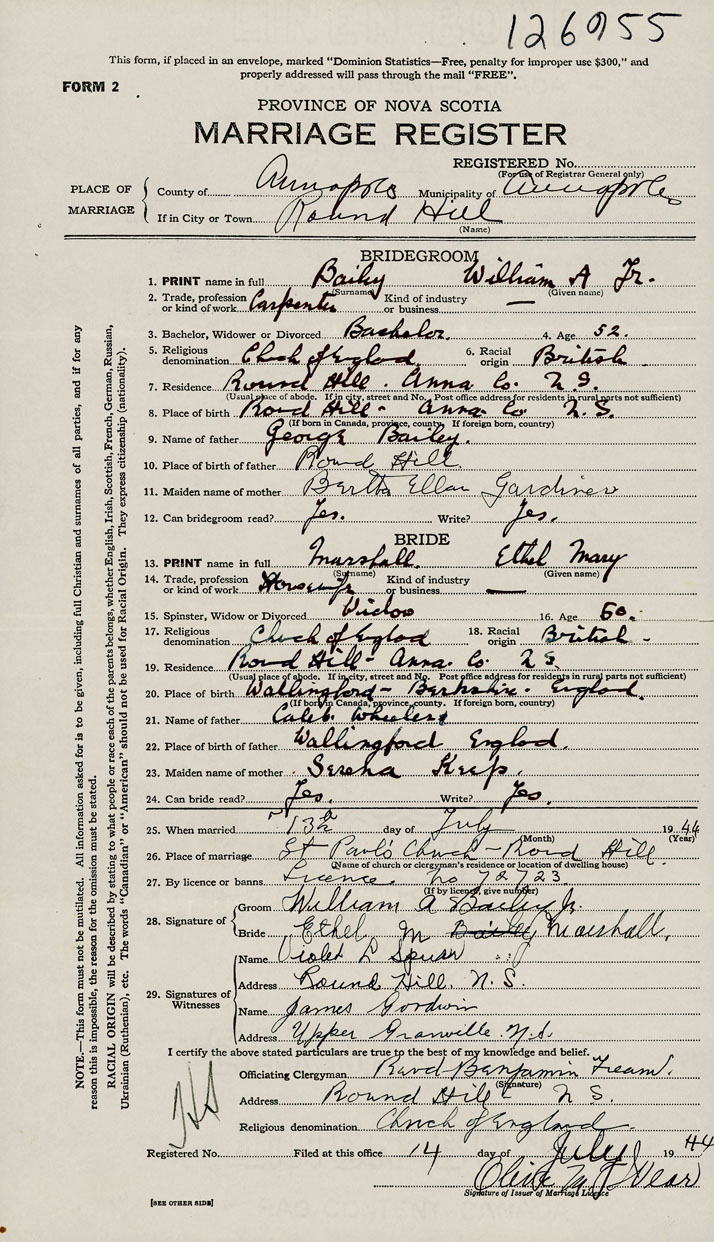 126955
This form, if placed in an envelope, marked "Dominion Statistics—Free, penalty for improper use $300," and
properly addressed will pass through the mail "FREE".
FORM 2
PROVINCE OF NOVA SCOTIA
MARRIAGE REGISTER
REGISTERED No.
(For use of Registrar General only)
PLACE OF MARRIAGE
County of Annapolis Municipality of Annapolis
If in City or Town Round Hill
(Name)
BRIDEGROOM
1. PRINT name in full Bailey William A Jr.
(Surname) (Given name)
2. Trade, profession or kind of work Carpenter Kind of industry or business —
3. Bachelor, Widower or Divorced Bachelor. 4. Age 52.
5. Religious denomination Chuch of Englod 6. Racial origin British
7. Residence Round Hill. Anna Co. N.S.
(Usual place of abode. If in city, street and No. Post office address for residents in rural parts not sufficient)
8. Place of birth Round Hill - Anna Co N.S.
(If born in Canada, province, county. If foreign born, country)
9. Name of father George Bailey.
10. Place of birth of father Round Hill.
11. Maiden name of mother Bertha Ellen Gardiner
12. Can bridegroom read? Yes. Write? Yes.
BRIDE
13. PRINT name in full Marshall. Ethel Mary
(Surname) (Given name)
14. Trade, profession or kind of work Housewife Kind of industry or business —
15. Spinster, Widow or Divorced Widow 16. Age 60.
17. Religious denomination Chuch of Englod 18. Racial origin British -
19. Residence Round Hill - Anna. Co. N S.
(Usual place of abode. If in city, street and No. Post office address for residents in rural parts not sufficient)
20. Place of birth Wallingford - Berkshire - England.
(If born in Canada, province, county. If foreign born, country)
21. Name of father Caleb Wheelers
22. Place of birth of father Wallingford Englod.
23. Maiden name of mother Serena Keep.
24. Can bride read? Yes. Write? Yes.
25. When married 13th day of July 1944
(Month) (Year)
26. Place of marriage St Paul's Church - Round Hill.
(Name of church or clergyman's residence or location of dwelling house)
27. By licence or banns Licence. No 72723
(If by licence, give number)
28. Signature of
Groom William A Bailey Jr.
Bride Ethel M Marshall.
29. Signatures of Witnesses
Name Violet L Spurr
Address Round Hill. N.S.
Name James Goodwin
Address Upper Granville. N.S.
I certify the above stated particulars are true to the best of my knowledge and belief.
Officiating Clergyman Revd Benjamin Tream.
(Signature)
Address Round Hill N S.
Religious denomination Church of England
Registered No. Filed at this office 14 day of July 1944
Signature of Issuer of Marriage Licence
[SEE OTHER SIDE]
NOTE.—This form must not be mutilated. All information asked for is to be given, including full Christian and surnames of all parties, and if for any
reason this is impossible, the reason for the omission must be stated.
RACIAL ORIGIN will be described by stating to what people or race each of the parents belongs, whether English, Irish, Scottish, French, German, Russian,
Ukrainian (Ruthenian), etc. The words "Canadian" or "American" should not be used for Racial Origin. They express citizenship (nationality).